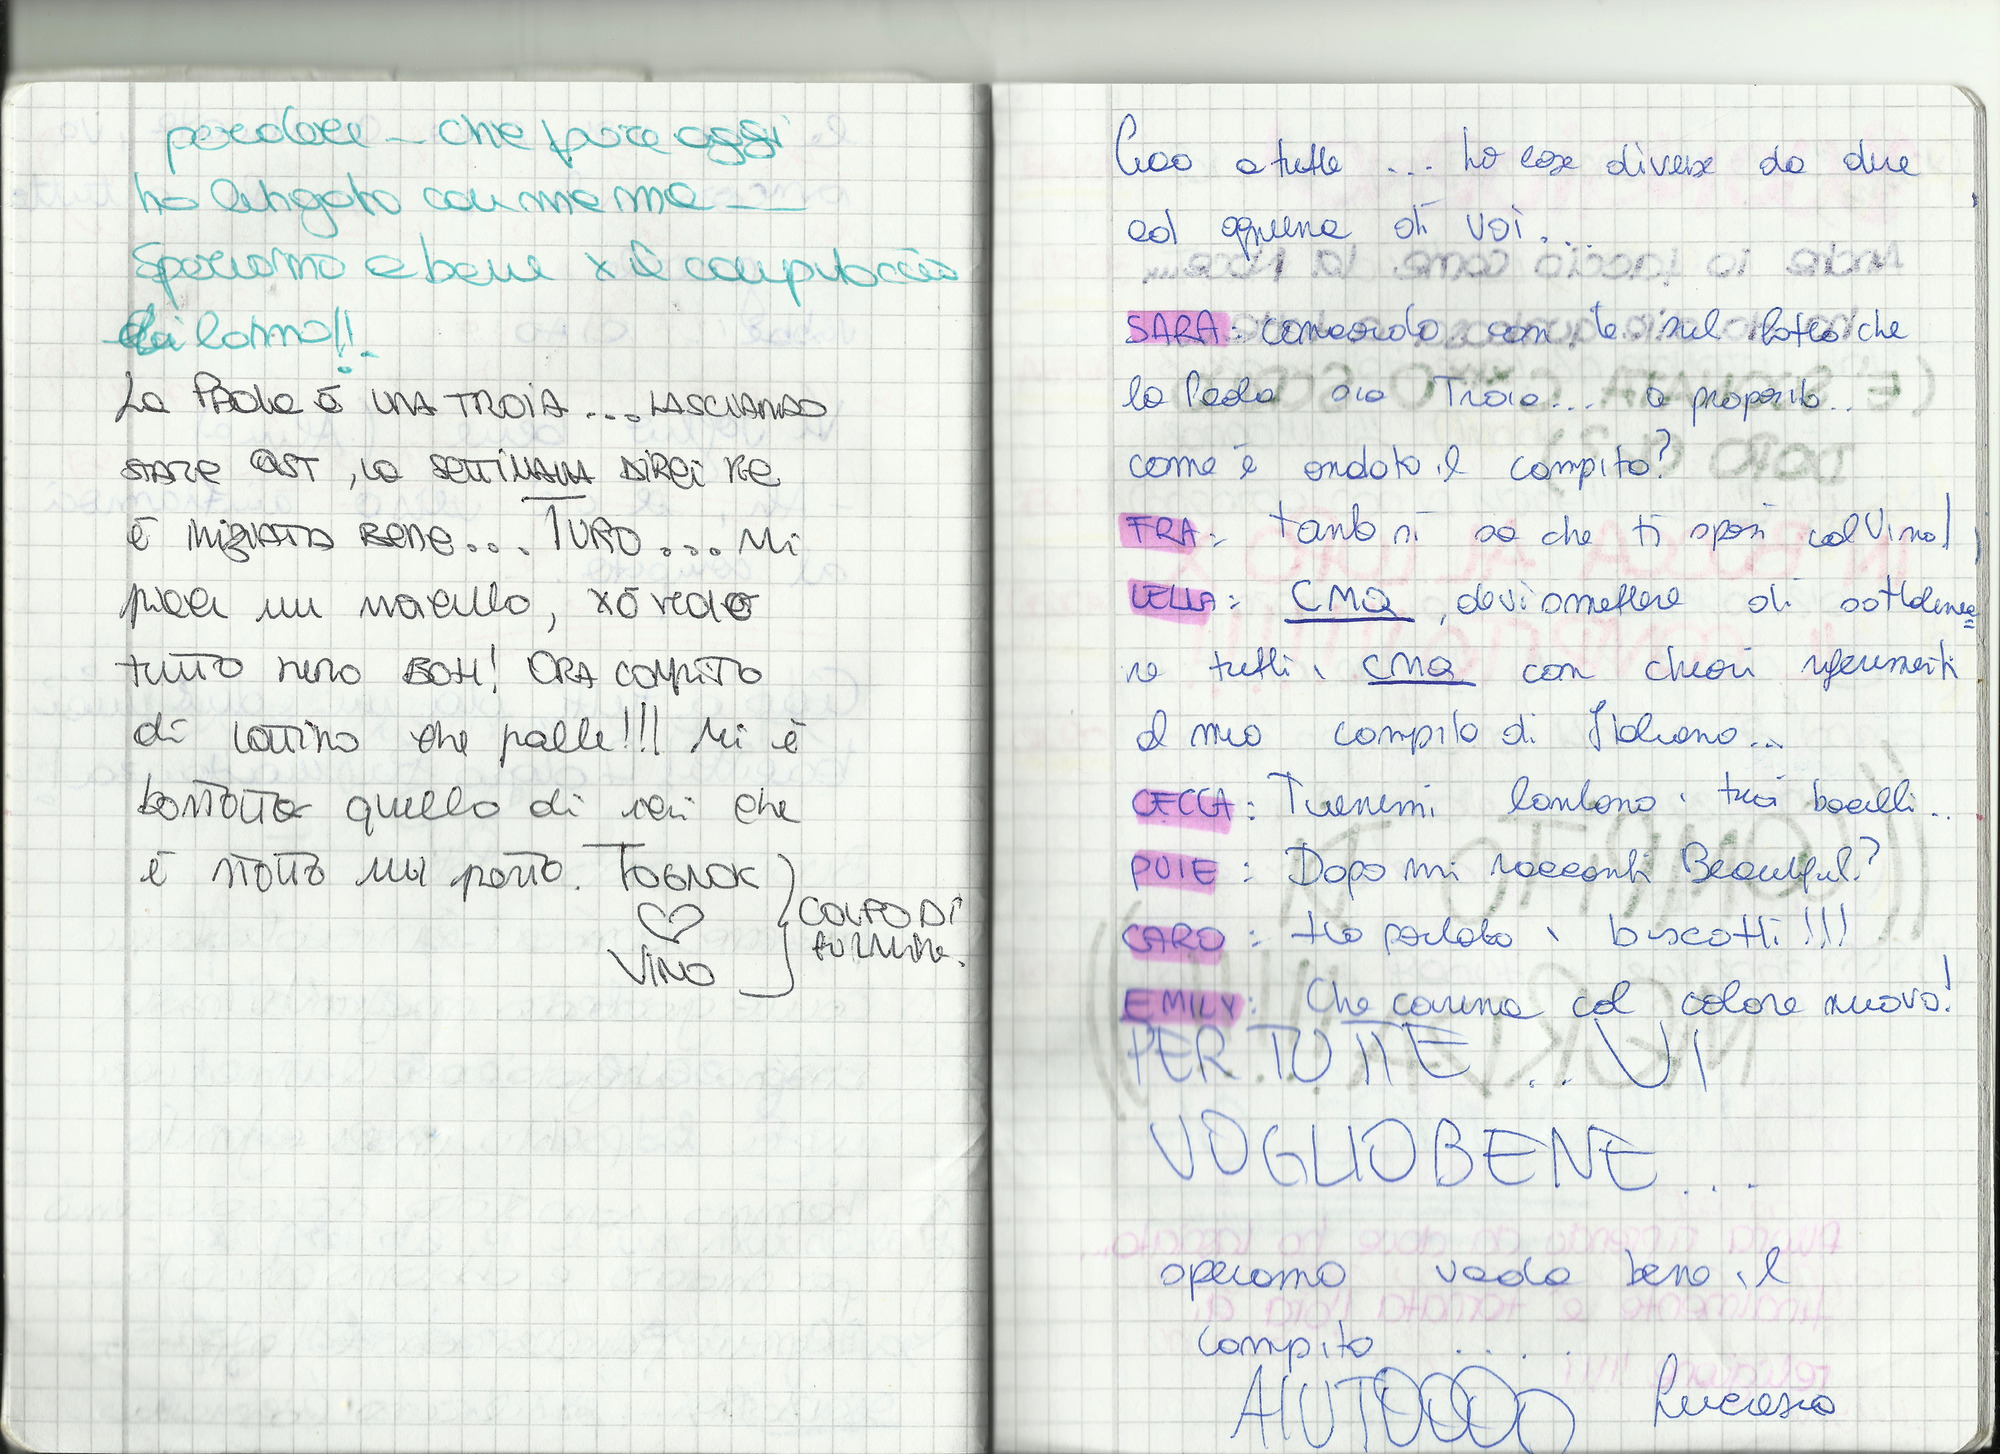 perdere – che fare oggi
ho litigato con mamma –
Speriamo e bene x il compitaccio
di latino!!
La Paola è UNA TROIA... LASCIANDO
STARE QST, LA SETTIMANA DIREI KE
È INIZIATA BENE... TURO... Mi
piace un macello, xò vedo
tutto nero BOH! ORA COMPITO
di latino che palle!!! Mi è
bastato quello di ieri che
è stato un parto. TOGNOK
♡
VINO
COLPO DI
FULMINE.
Ciao a tutte ... ho cose diverse da dire
ad ognuna di voi...
SARA: concordo con te sul fatto che
la Paola sia Troia... a proposito..
come è andato il compito?
FRA: tanto si sa che ti sposi col Vino!
LELLA: CMQ, devi smettere di sottolinea
re tutti i CMQ con chiari riferimenti
al mio compito di Italiano...
CECCA: Tienimi lontano i tuoi bacilli..
PUIE: Dopo mi racconti Beautiful?
CARO: t'ho portato i biscotti!!!
EMILY: Che carina col colore nuovo!
PER TUTTE... VI
VOGLIO BENE...
speriamo vada bene il
compito ....
AIUTOOOOO Lucrezia